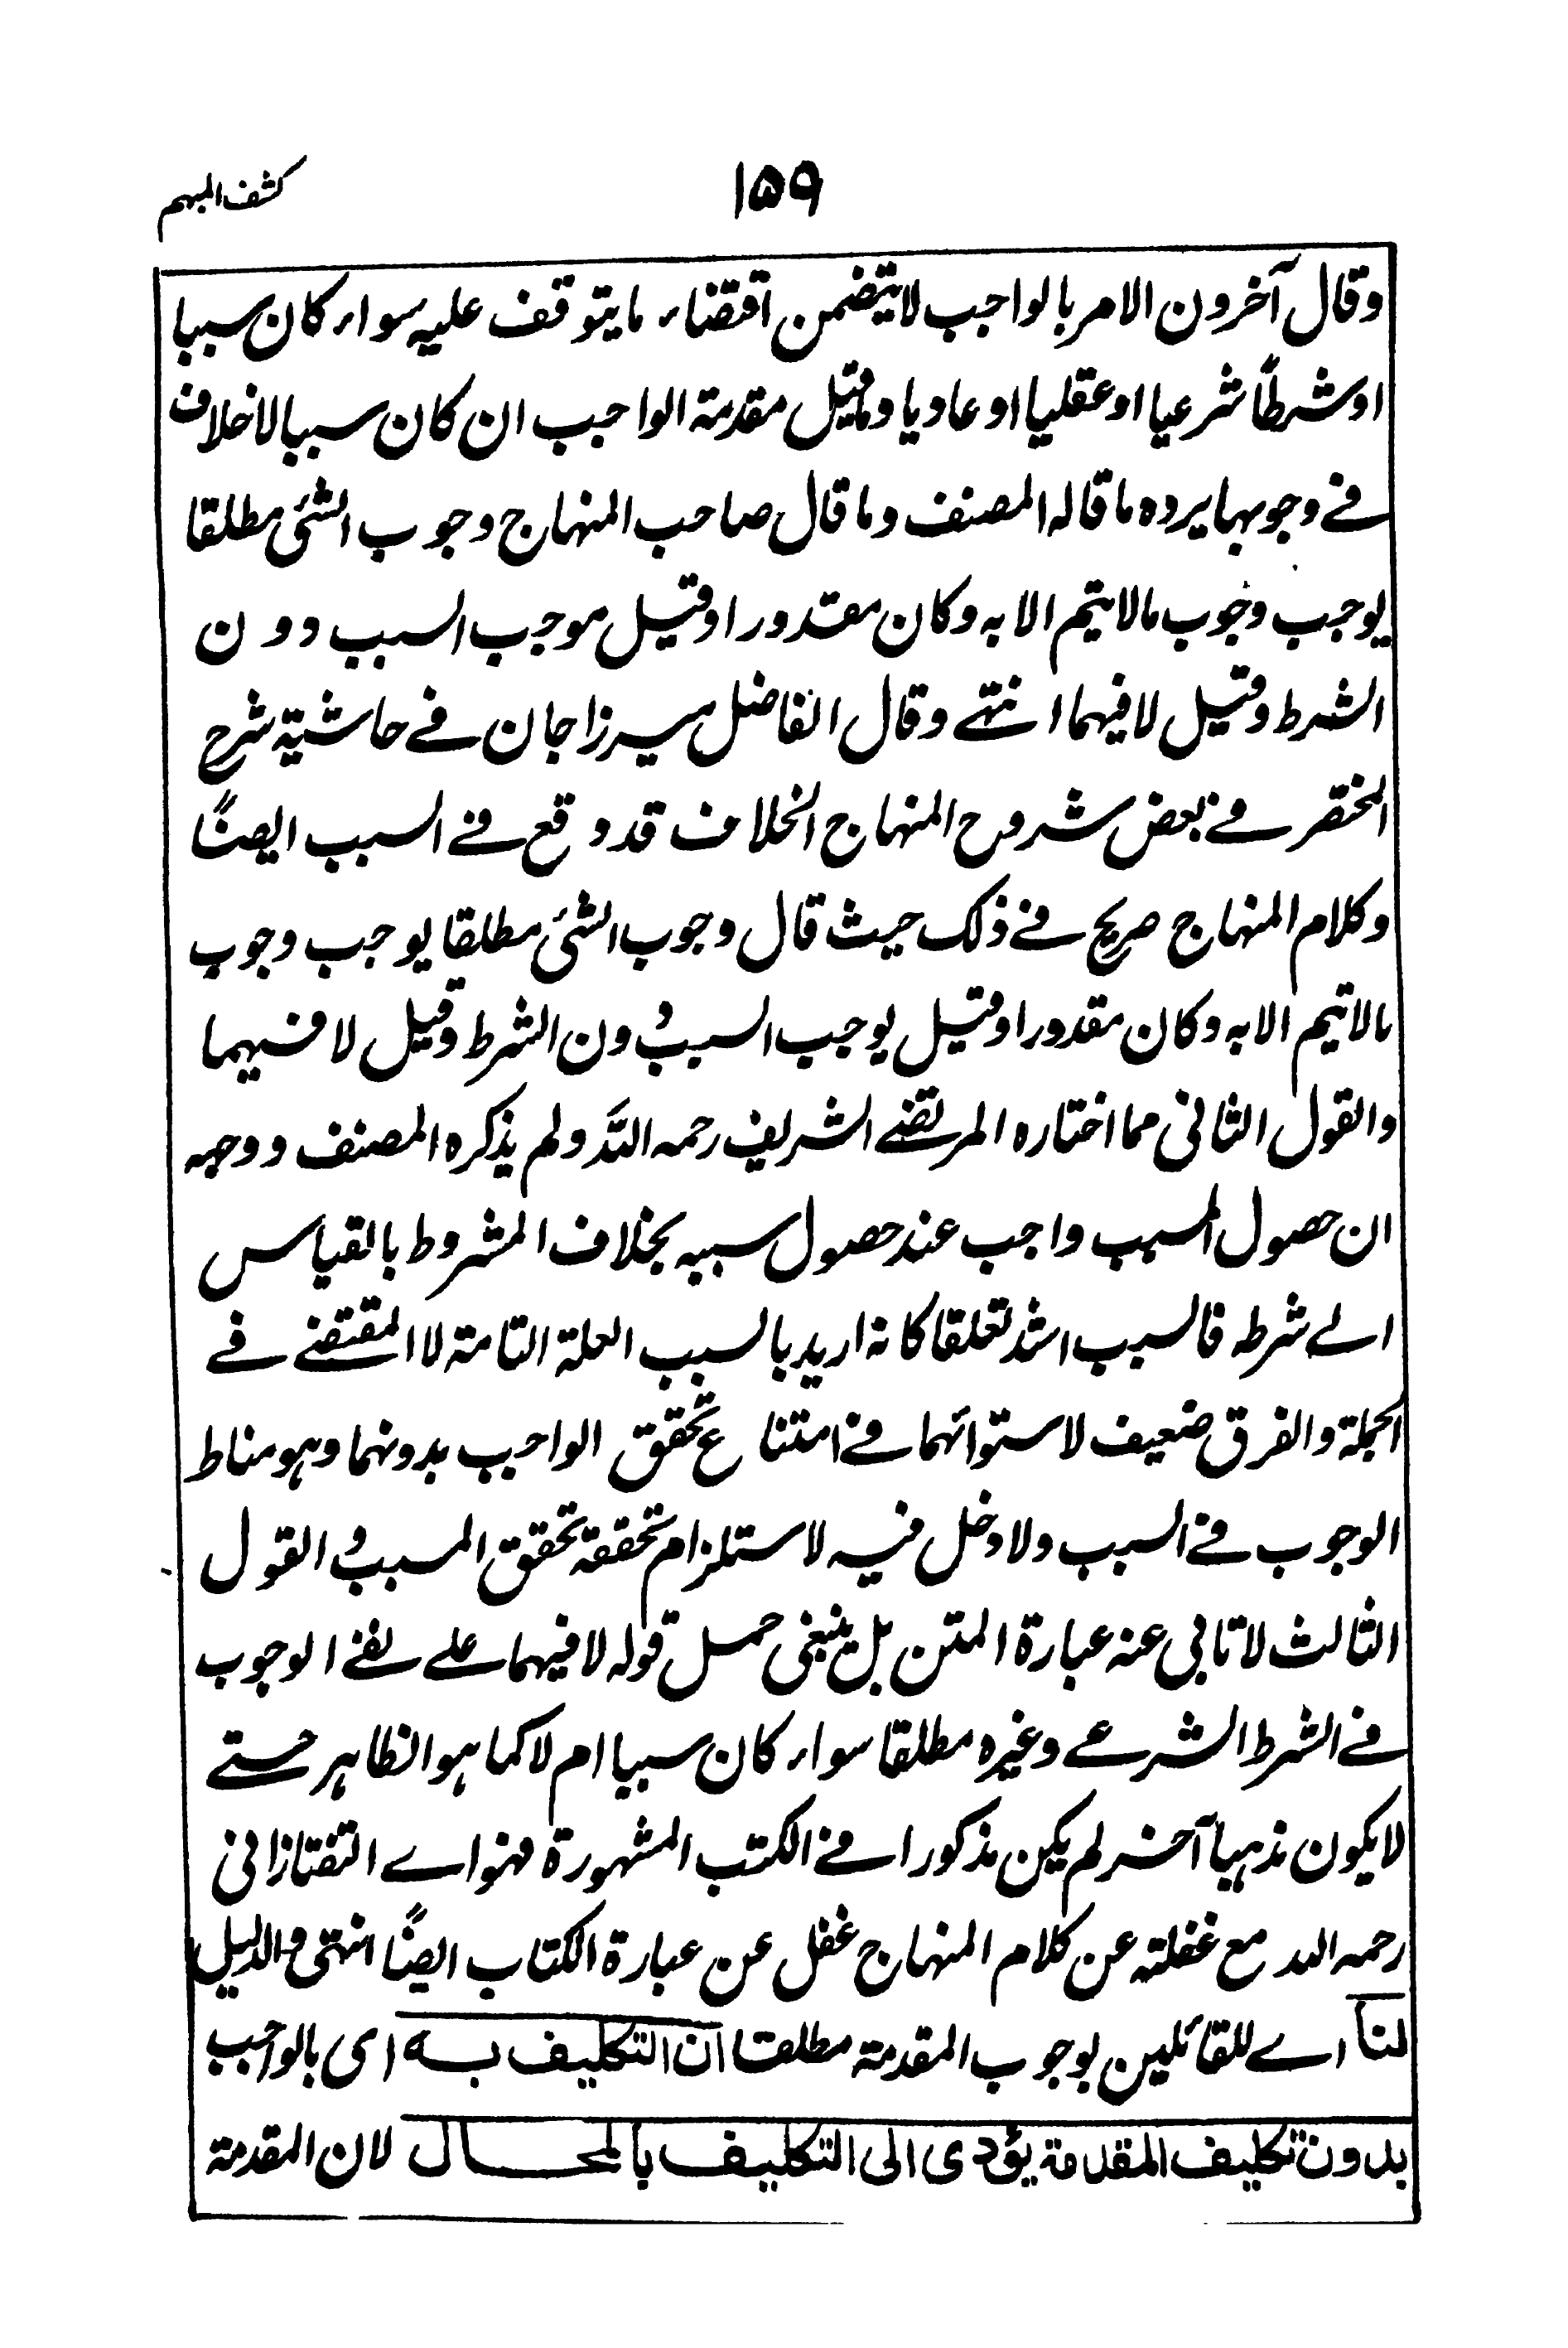 ۱۵۹
كشف المبهم
وقال آخرون الامر بالواجب لا يتضمن اقتضاء ما يتوقف عليه سواء كان سببا
او شرطًا شرعيا او عقليا او عاديا وما قيل مقدمة الواجب ان كان سببا لا خلاف
فے وجوبها يرده ما قاله المصنف وما قال صاحب المنهاج وجوب الشئ مطلقا
يوجب وجوب ما لا يتم الا به وكان مقدورا وقيل موجب السبب دون
الشرط وقيل لا فيهما انتهے وقال الفاضل ميرزا جان فے حاشية شرح
المختصر فے بعض شروح المنهاج الخلاف قد وقع فے السبب ايضًا
وكلام المنهاج صريح فے ذلك حيث قال وجوب الشئ مطلقا يوجب وجوب
ما لا يتم الا به وكان مقدورا وقيل يوجب السبب دون الشرط وقيل لا فيهما
والقول الثانى مما اختاره المرتضے الشريف رحمه الله ولم يذكره المصنف ووجهه
ان حصول المسبب واجب عند حصول سببه بخلاف المشروط بالقياس
الے شرطه فالسبب اشد تعلقا كانه اريد بالسبب العلة التامة لا المقتضے فے
الجملة والفرق ضعيف لاستوائهما فے امتناع تحقق الواجب بدونهما وهو مناط
الوجوب فے السبب ولا دخل فيه لاستلزام تحققه تحقق المسبب والقول
الثالث لا تابى عنه عبارة المتن بل ينبغى حمل قوله لا فيهما علے نفے الوجوب
فے الشرط الشرعے وغيره مطلقا سواء كان سببا ام لا كما هو الظاهر حتے
لا يكون مذهبا آخر لم يكن مذكورا فے الكتب المشهورة فهو اے التفتازانى
رحمه الله مع غفلته عن كلام المنهاج غفل عن عبارة الكتاب ايضًا انتهى والدليل
لنا اے للقائلين بوجوب المقدمة مطلقا ان التكليف به اى بالواجب
بدون تكليف المقدمة يؤدى الى التكليف بالمحال لان المقدمة